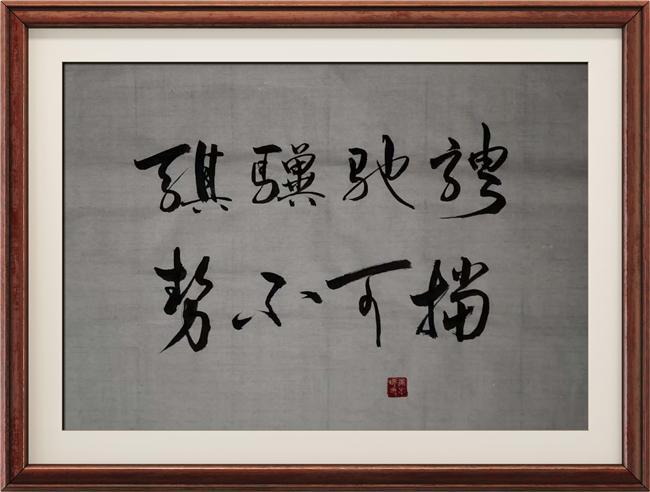 騏驥馳騁
势不可擋